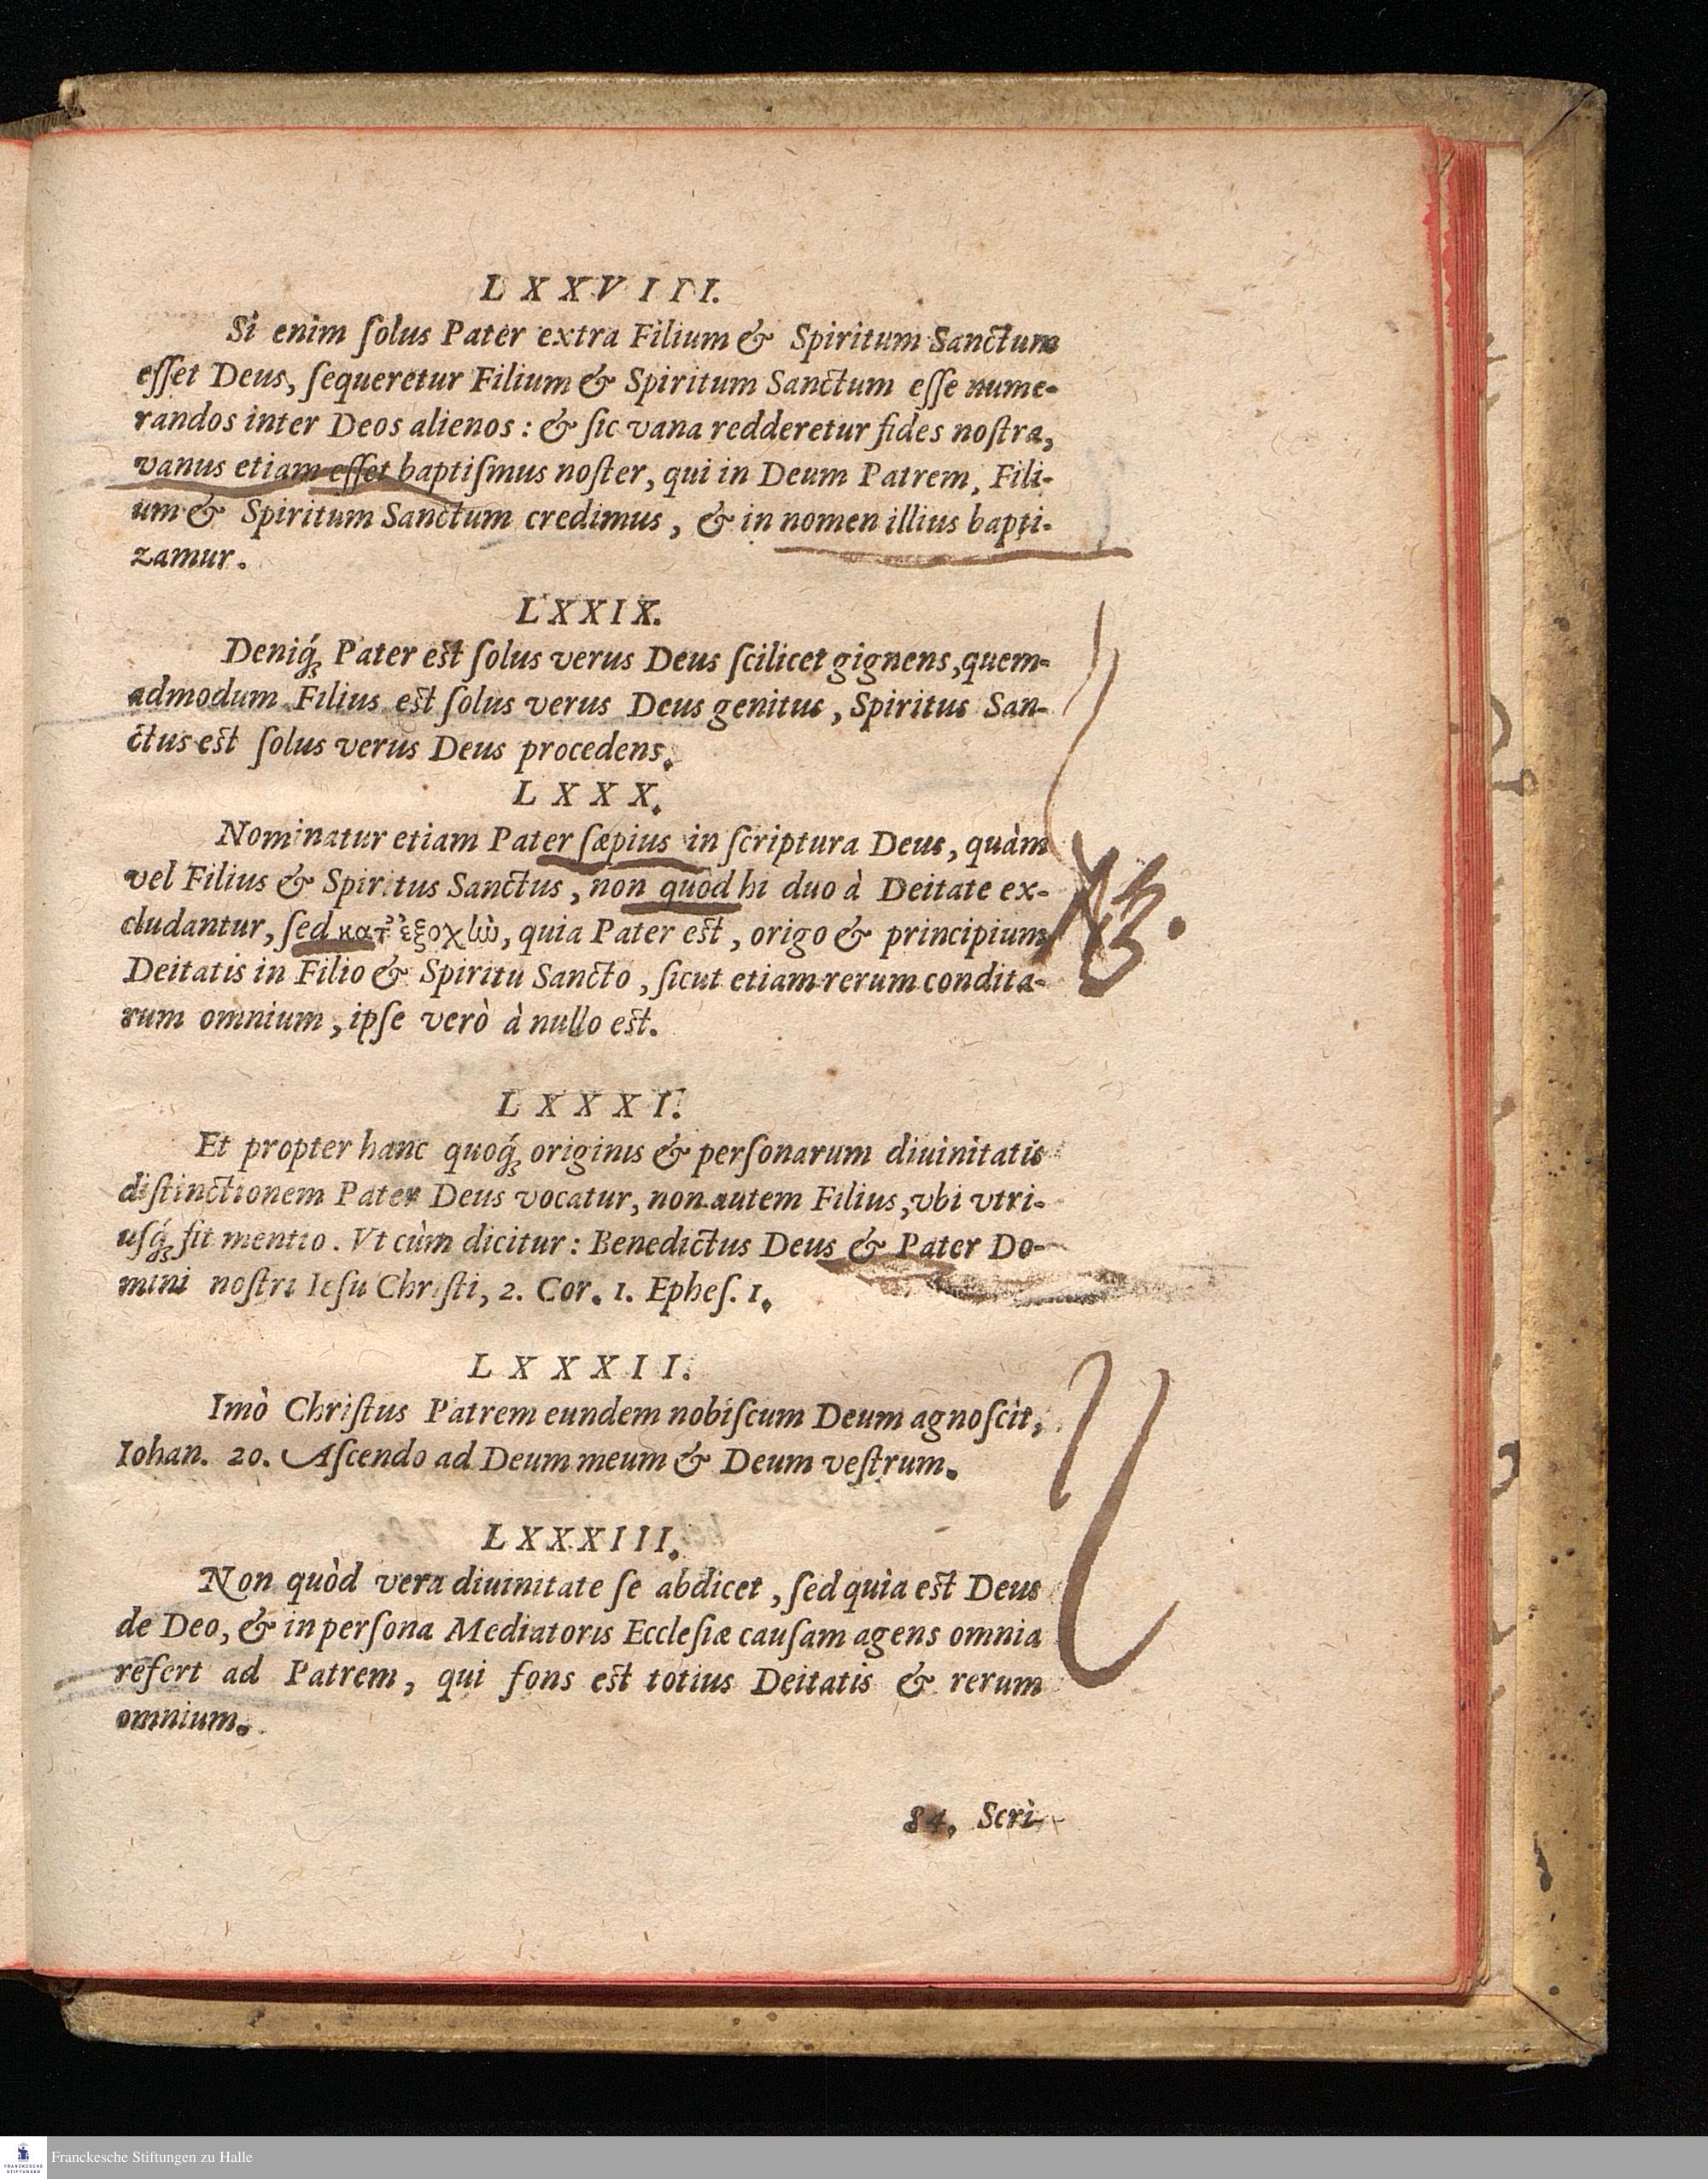 LXXVIII.
Si enim ſolus Pater extra Filium & Spiritum Sanctum
eſſet Deus, ſequeretur Filium & Spiritum Sanctum eſſe nume-
randos inter Deos alienos: & ſic vana redderetur fides noſtra,
vanus etiam eſſet baptiſmus noſter, qui in Deum Patrem, Fili-
um & Spiritum Sanctum credimus, & in nomen illius bapti-
zamur.
LXXIX.
Deniq́; Pater est ſolus verus Deus ſcilicet gignens, quem-
admodum Filius est ſolus verus Deus genitus, Spiritus San-
ctus est ſolus verus Deus procedens.
LXXX.
Nominatur etiam Pater ſæpius in ſcriptura Deus, quàm
vel Filius & Spiritus Sanctus, non quòd hi duo à Deitate ex-
cludantur, ſed κατ' ἐξοχὴν, quia Pater est, origo & principium
NB.
Deitatis in Filio & Spiritu Sancto, ſicut etiam rerum condita-
rum omnium, ipſe verò à nullo est.
LXXXI.
Et propter hanc quoq́; originis & perſonarum diuinitatis
diſtinctionem Pater Deus vocatur, non autem Filius, vbi vtri-
uſq́; fit mentio. Vt cùm dicitur: Benedictus Deus & Pater Do-
mini noſtri Ieſu Chriſti, 2. Cor. 1. Epheſ. 1.
LXXXII.
Imò Chriſtus Patrem eundem nobiſcum Deum agnoſcit,
Iohan. 20. Aſcendo ad Deum meum & Deum veſtrum.
LXXXIII.
Non quòd vera diuinitate ſe abdicet, ſed quia est Deus
de Deo, & in perſona Mediatoris Eccleſiæ cauſam agens omnia
refert ad Patrem, qui fons est totius Deitatis & rerum
omnium.
84. Scri-
FRANCKESCHE
STIFTUNGEN
Franckesche Stiftungen zu Halle